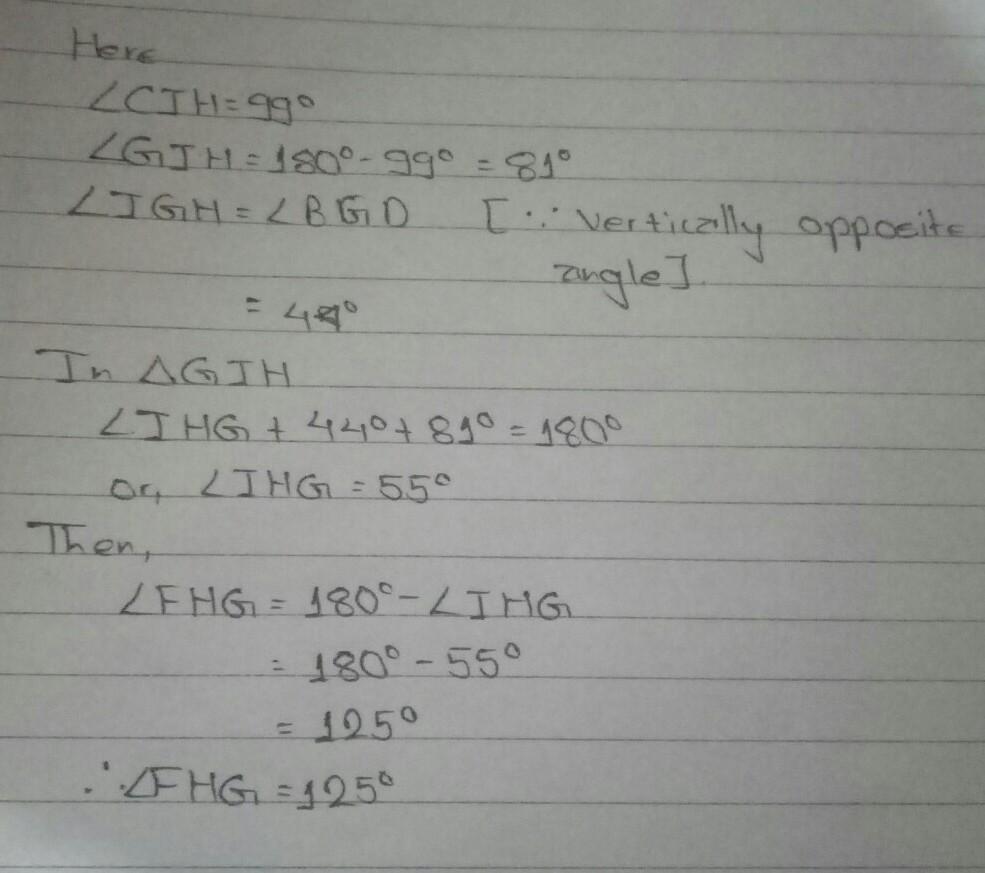 Here
∠CIH=99°
∠GIH=180°-99° = 81°
∠IGH=∠BGD [∵ vertically opposite
angle]
= 44°
In △GIH
∠IHG + 44°+ 81° = 180°
or, ∠IHG = 55°
Then,
∠FHG = 180°-∠IHG
= 180° - 55°
= 125°
∴∠FHG = 125°